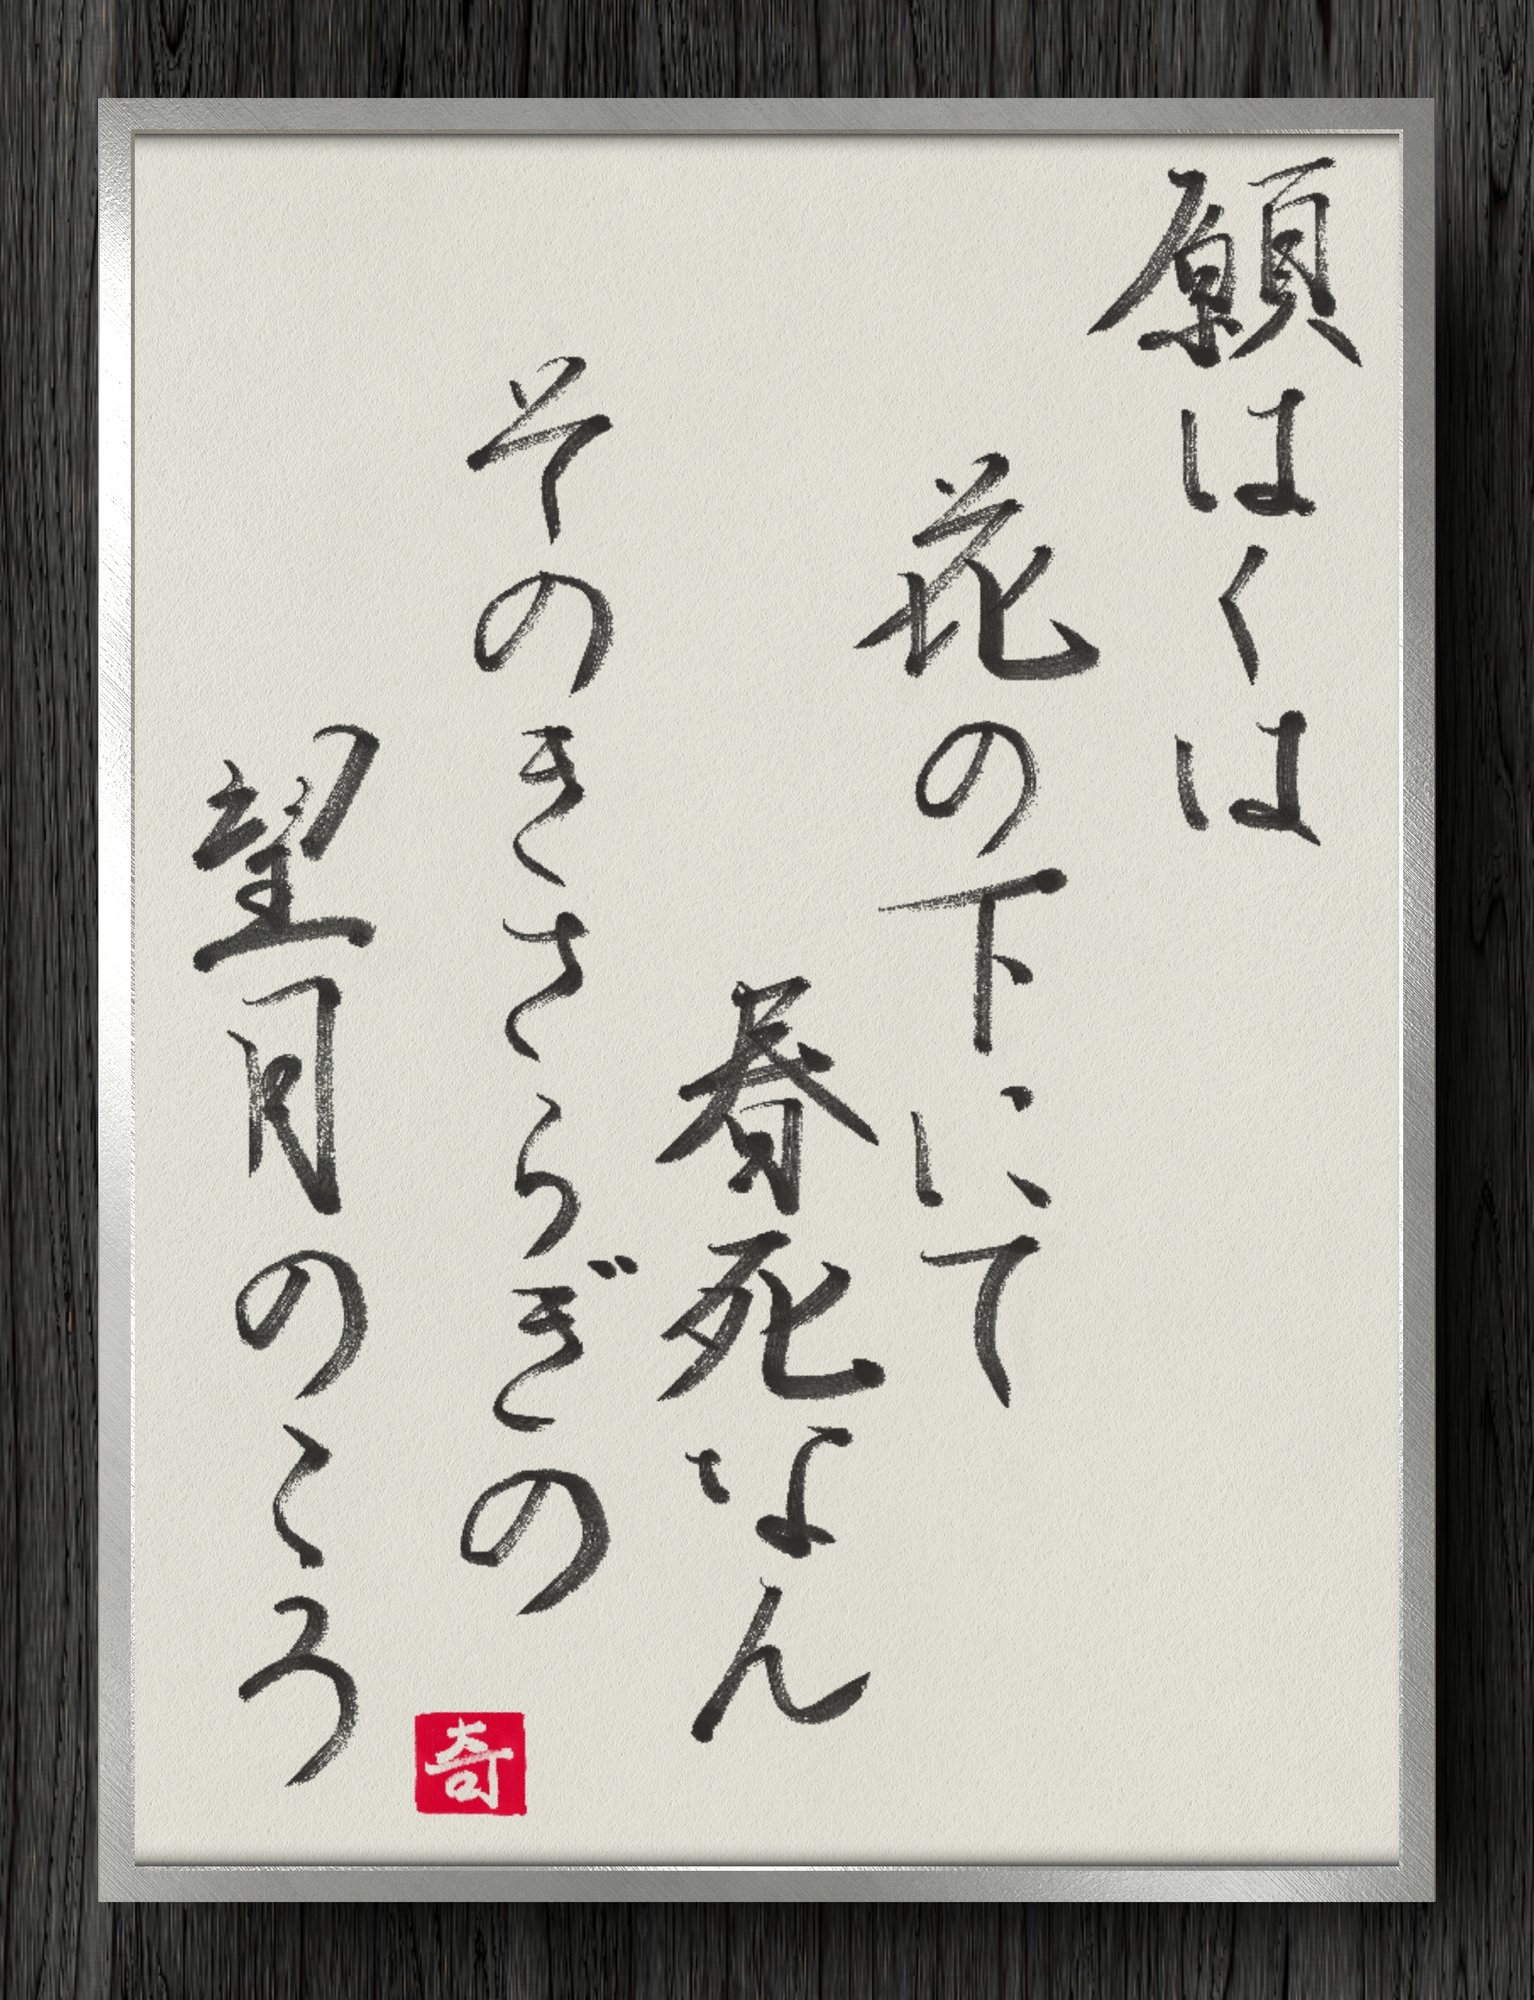 願はくは
花の下にて
春死なん
そのきさらぎの
望月のころ
奇